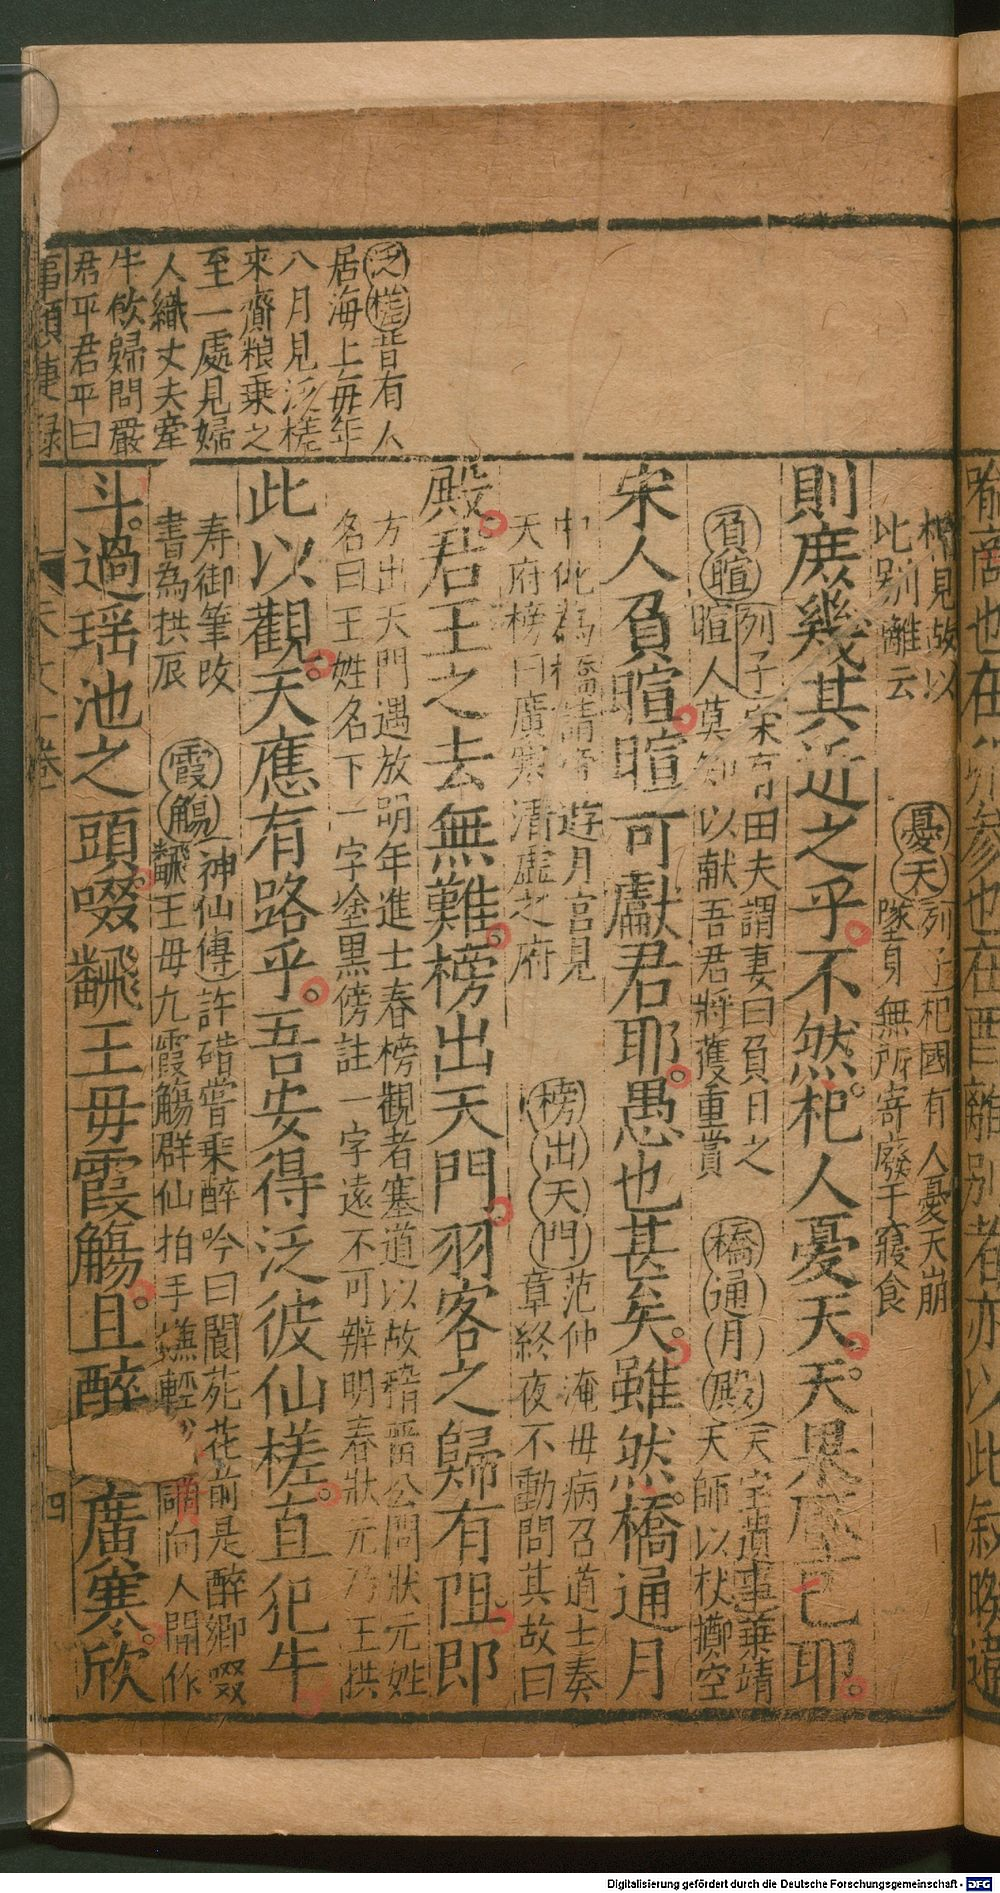 泛槎昔有人
居海上每年
八月見泛槎
來齎粮乗之
至一處見婦
人織丈夫牽
牛飲歸問嚴
君平君平曰
相見故以
比别離云
憂天列子杞國有人憂天崩
墜身無所寄廢于寢食
則庶幾其近之乎不然杞人憂天天果壓己耶
負暄列子宋有田夫謂妻曰負日之
暄人莫知以献吾君將獲重賞
橋通月殿天寶遺事葉靖
天師以杖擲空
宋人負暄暄可獻君耶愚也甚矣雖然橋通月
中化為橋請帝遊月宫見
天府榜曰廣寒清虚之府
榜出天門范仲淹毋病召道士奏
章終夜不動問其故曰
殿君王之去無難榜出天門羽客之歸有阻即
方出天門遇放明年進士春榜觀者塞道以故稽留公問狀元姓
名曰王姓名下一字塗黒傍註一字遠不可辨明春狀元乃王拱
此以觀天應有路乎吾安得泛彼仙槎直犯牛
寿御筆改
書為拱辰
霞觴神仙傳許碏嘗乗醉吟曰閬苑花前是醉鄉啜
飜王毋九霞觴群仙拍手嫌輕 謫向人間作
斗過瑶池之頭啜飜王毋霞觴且醉 廣寒欣
事類捷録
天文一卷
四
喻商也在 參也在酉離别者亦以此叙暌違
Digitalisierung gefördert durch die Deutsche Forschungsgemeinschaft - DFG